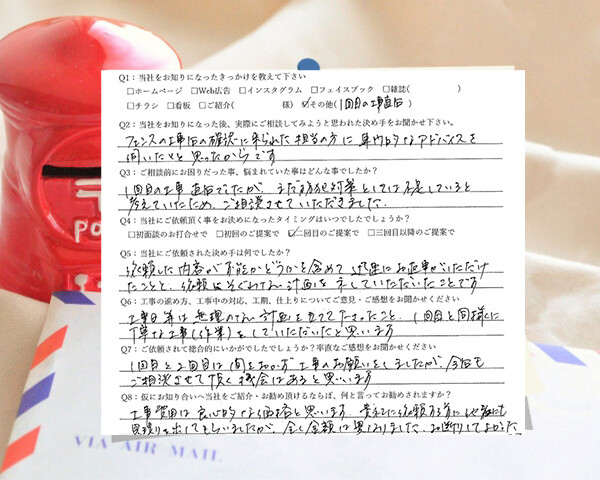 Q1：当社をお知りになったきっかけを教えて下さい
□ホームページ □Web広告 □インスタグラム □フェイスブック □雑誌( )
□チラシ □看板 □ご紹介( 様) ☑その他(1回目の工事直后)
Q2：当社をお知りになった後、実際にご相談してみようと思われた決め手をお聞かせ下さい。
フェンスの工事后の確認に来られた担当の方に専門的なアドバイスを
伺いたいと思ったからです
Q3：ご相談前にお困りだった事、悩まれていた事はどんな事でしたか？
1回目の工事直后でしたが、まだ防犯対策としては不足していると
考えていたため、ご相談させていただきました。
Q4：当社にご依頼頂く事をお決めになったタイミングはいつでしたでしょうか？
□初面談のお打合せで □初回のご提案で ☑二回目のご提案で □三回目以降のご提案で
Q5：当社にご依頼された決め手は何でしたか？
依頼した内容が可能かどうかを含めて迅速にお返事がいただけ
たことと、依頼にそった計画を示していただいたことです
Q6：工事の進め方、工事中の対応、工期、仕上りについてご意見・ご感想をお聞かせください
工事日等は無理のない計画を立てて下さったこと、1回目と同様に
丁寧な工事(作業)をしていただいたと思います
Q7：ご依頼されて総合的にいかがでしたでしょうか？率直なご感想をお聞かせください
1回目と2回目は間をおかず工事のお願いをしましたが、今后も
ご相談させて頂く機会はあると思います
Q8：仮にお知り合いへ当社をご紹介・お勧め頂けるならば、何と言ってお勧めされますか？
工事費用は良心的な価格と思います。貴社に依頼する前に他社にも
見積りを出してもらいましたが、全く金額は異なりました。お断りしてよかった
VIA AIR MAIL
〒
PO